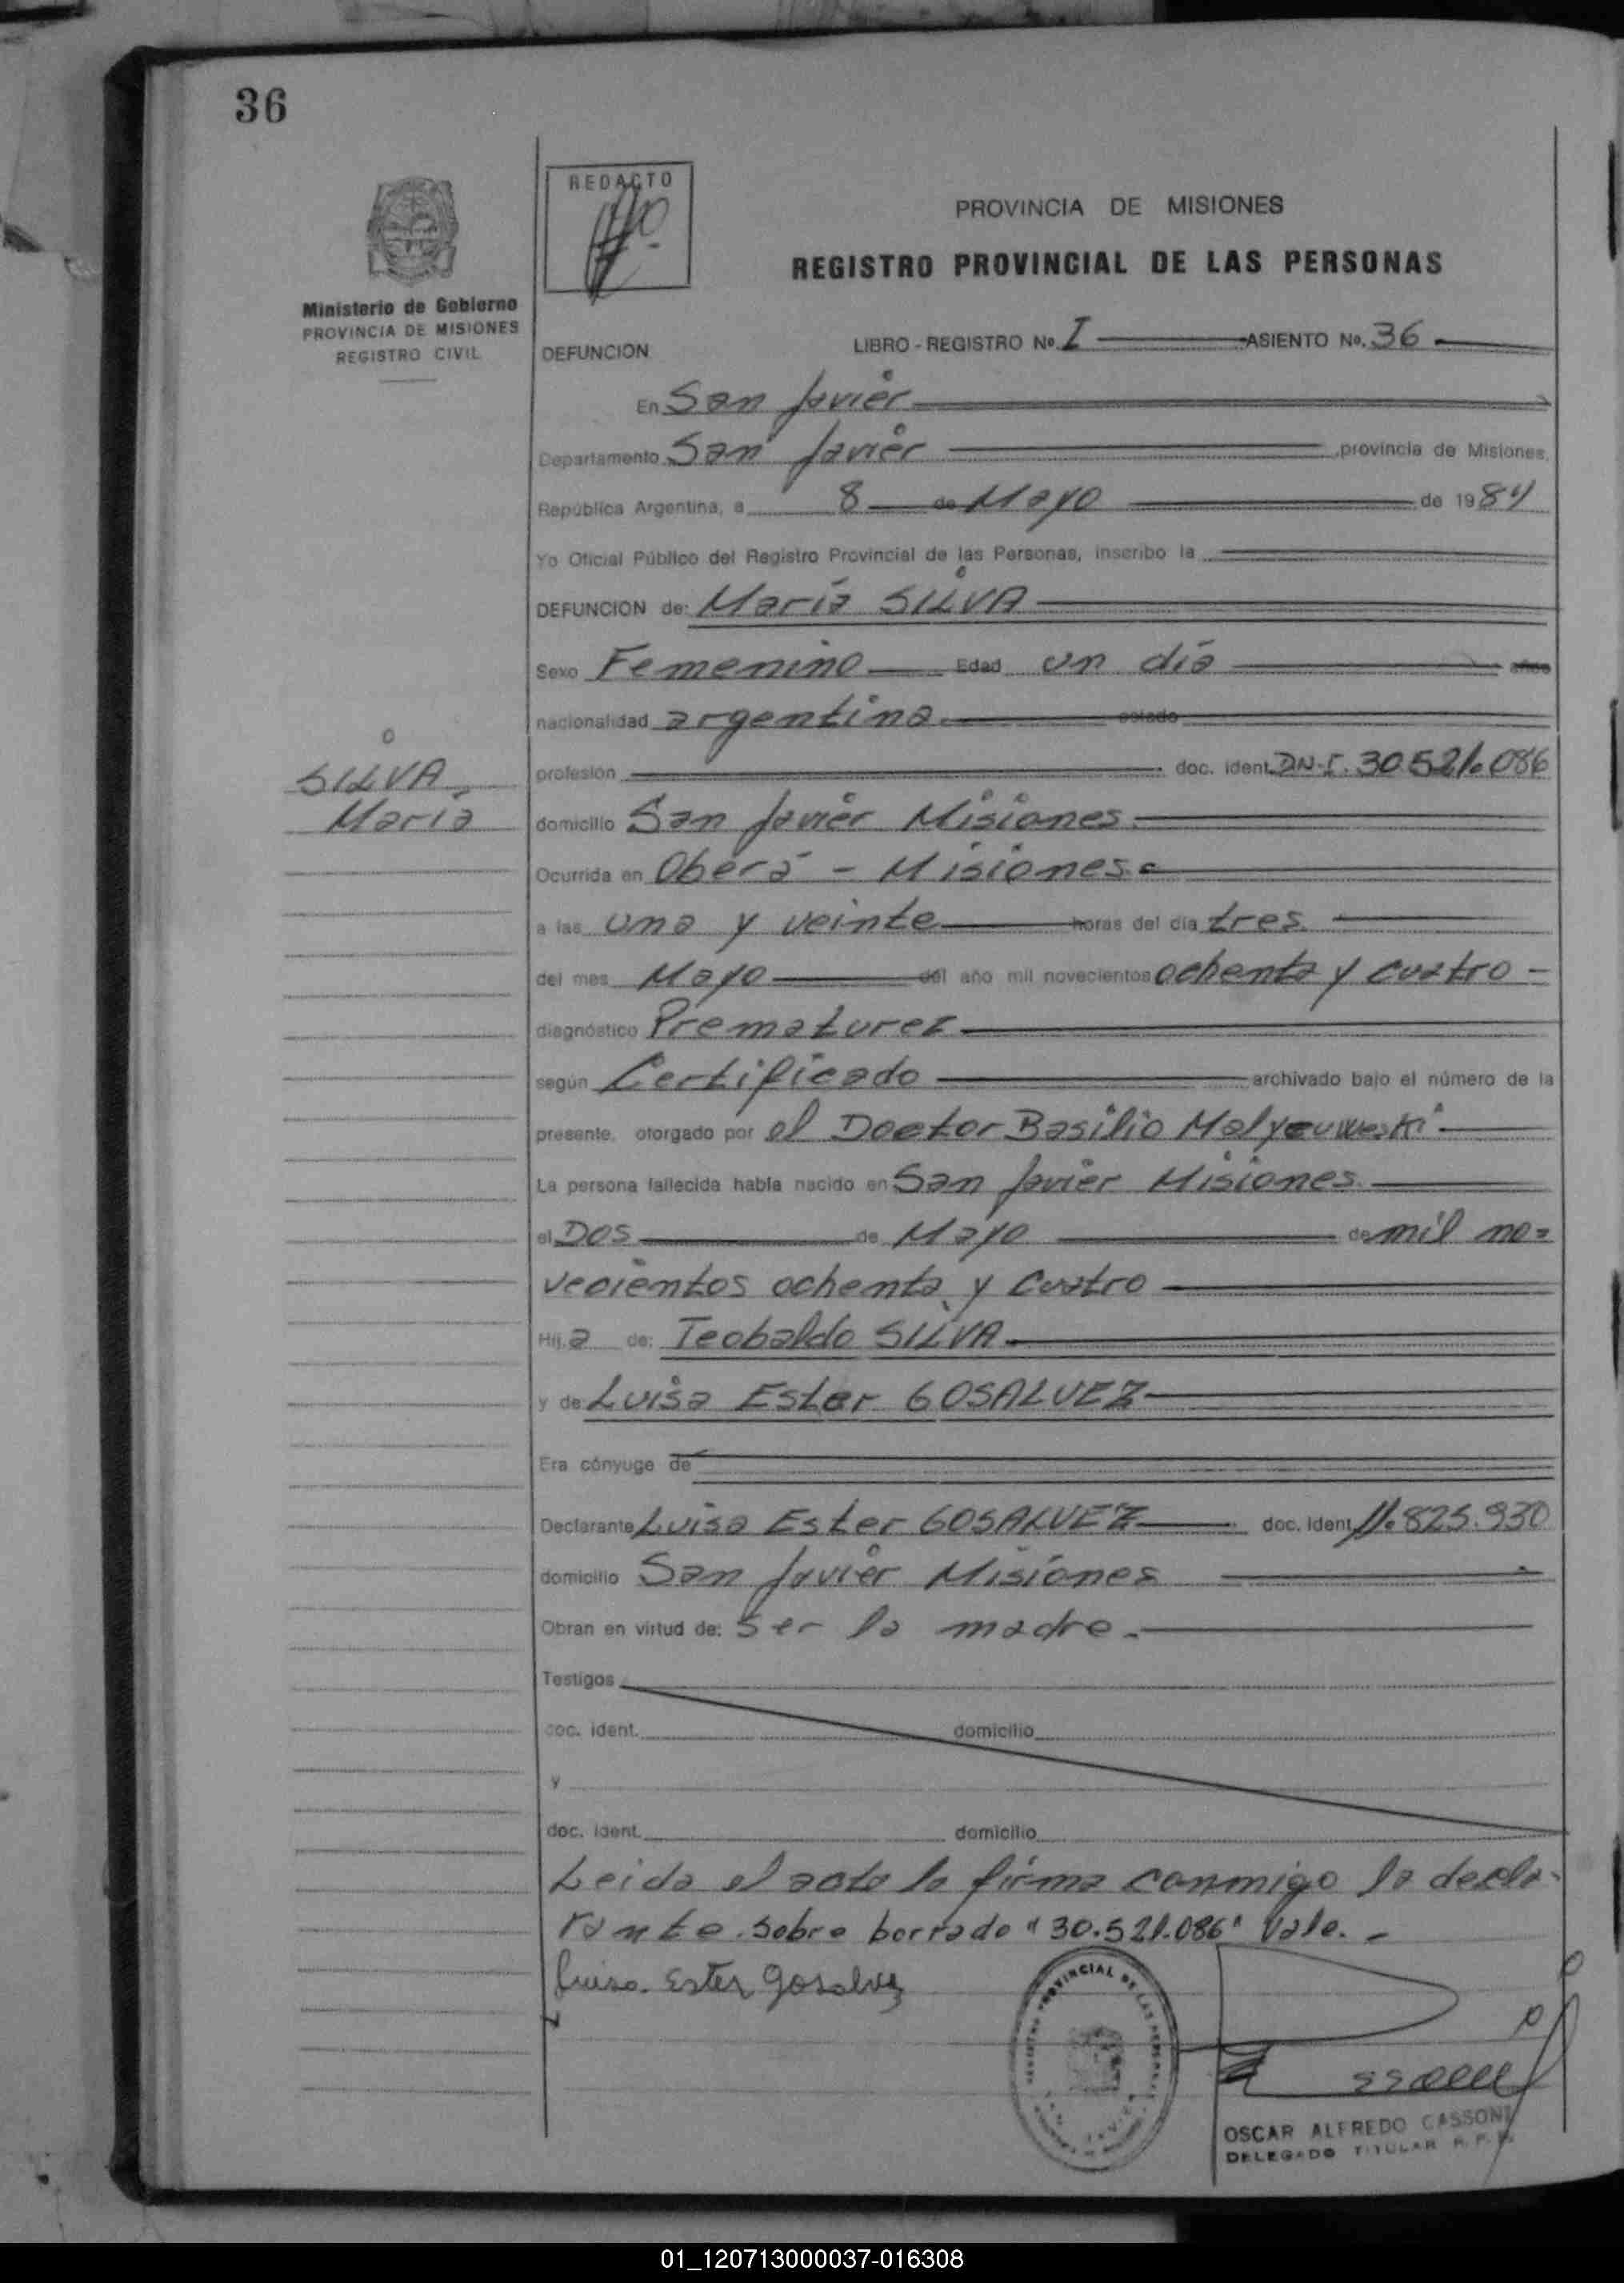 36
REDACTO
PROVINCIA DE MISIONES
REGISTRO PROVINCIAL DE LAS PERSONAS
Ministerio de Gobierno
PROVINCIA DE MISIONES
REGISTRO CIVIL
DEFUNCION
LIBRO - REGISTRO No. I ASIENTO No. 36
En San Javier
Departamento San Javier provincia de Misiones,
República Argentina, a 8 de Mayo de 1984
Yo Oficial Público del Registro Provincial de las Personas, inscribo la
DEFUNCION de: María SILVA
Sexo Femenino Edad un día años
nacionalidad argentina estado
SILVA
María
profesión doc. ident. DN-I. 30521.086
domicilio San Javier Misiones
Ocurrida en Oberá - Misiones
a las una y veinte horas del día tres
del mes Mayo del año mil novecientos ochenta y cuatro -
diagnóstico Prematurez
según Certificado archivado bajo el número de la
presente, otorgado por el Doctor Basilio
La persona fallecida había nacido en San Javier Misiones
el Dos de Mayo de mil no=
vecientos ochenta y cuatro
Hij.a de: Teobaldo SILVA
y de Luisa Ester GOSALVEZ
Era cónyuge de
Declarante Luisa Ester GOSALVEZ doc. ident 11.825.930
domicilio San Javier Misiones
Obran en virtud de: Ser la madre.
Testigos
doc. ident. domicilio
y
doc. ident. domicilio
Leida el acta la firma conmigo la decla-
rante. Sobre borrado "30.521.086" Vale. -
Luisa. Ester Gosalvez
OSCAR ALFREDO CASSONI
DELEGADO TITULAR R. P. P.
01_120713000037-016308